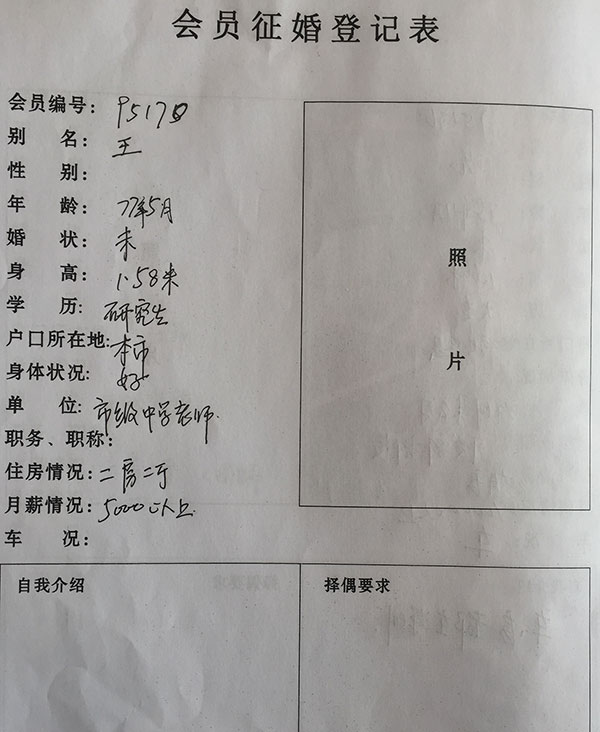 会员征婚登记表
会员编号: 95170
别 名: 王
性 别:
年 龄: 77年5月
婚 状: 未
身 高: 1.58米
学 历: 研究生
户口所在地: 本市
身体状况: 好
单 位: 市级中学老师.
职务、职称:
住房情况: 二房二厅
月薪情况: 5000以上
车 况:
照
片
自我介绍
择偶要求